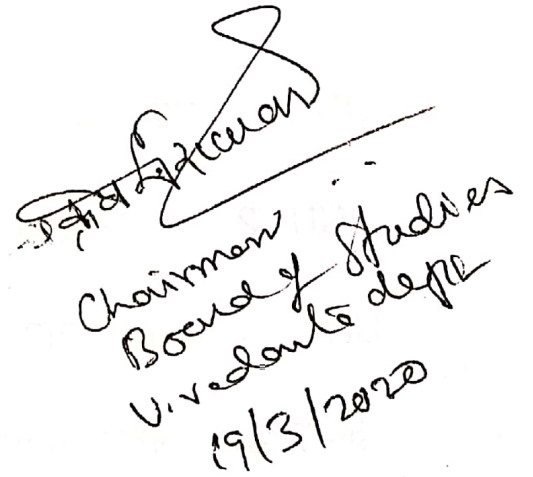 Chairman
Board of Studies
V. vedanta dept
19/3/2020